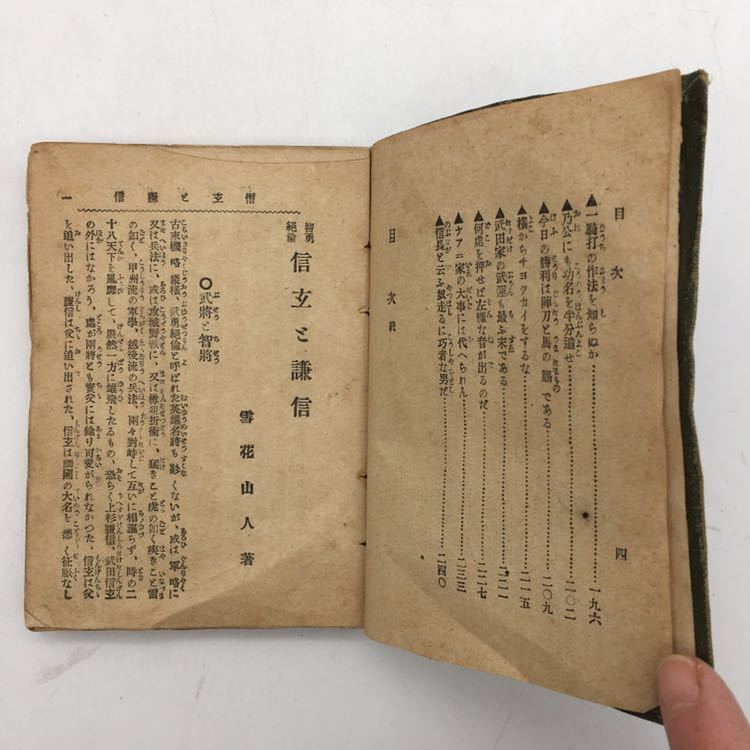 目次
四
▲一騎打の作法を知らぬか‥‥‥一九六
▲乃公にも功名を半分遣せ‥‥‥二〇二
▲今日の勝利は陣刀と馬の賜である‥‥‥二〇九
▲横からチヨツカイをするな‥‥‥二一五
▲武田家の武運も最ふ末である‥‥‥二二一
▲何處を押せば左樣な音が出るのだ‥‥‥二二七
▲ナアニ家の大事には代へられん‥‥‥二三三
▲信長と云ふ奴走るに巧者な男だ‥‥‥二四〇
目次終
信玄と謙信
一
智勇絕倫
信玄と謙信
雪花山人著
○武將と智將
古來機略縱橫、武勇絕倫と呼ばれた英雄名將も尠くないが、或は軍略に
又は兵法に、或は攻城野戰に、又は樽俎折衝に、猛きこと虎の如く疾きこと雷
の如く、甲州流の軍學、越後流の兵法、兩々對峙して互いに相讓らず、時の二
十八天下を風靡して、嚴然一方に雄飛したるもの、恐らく上杉謙信、武田信玄
の外にはなかろう、處が兩將とも實父には餘り可愛がられなかつた、信玄は父
を追い出した、謙信は父に追い出された、信玄は隣國の大名を悉く征服なし